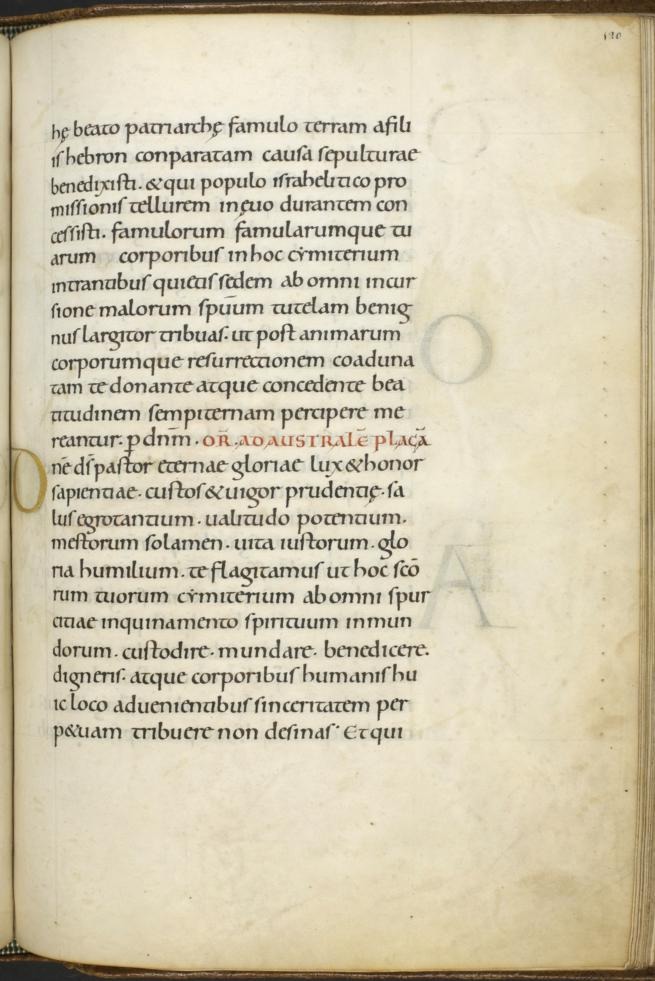 120
hę beato patriarchę famulo terram afili
is hebron conparatam causa sepulturae
benedixisti. & qui populo israhelitico pro
missionis tellurem inęuo durantem con
cessisti. famulorum famularumque tu
arum corporibus in hoc cẏmiterium
intrantibus quietis sedem ab omni incur
sione malorum spūum tutelam benig
nus largitor tribuas. ut post animarum
corporumque resurrectionem coaduna
tam te donante atque concedente bea
titudinem sempiternam percipere me
reantur. p dnm̄. OR̄. AD AUSTRALĒ PLAGĀ
O nē d̄s pastor eternae gloriae lux & honor
sapientiae. custos & uigor prudentię. sa
lus egrotantium. ualitudo potentium.
mestorum solamen. uita iustorum. glo
ria humilium. te flagitamus ut hoc scō
rum tuorum cẏmiterium ab omni spur
citiae inquinamento spirituum inmun
dorum. custodire. mundare. benedicere.
digneris. atque corporibus humanis hu
ic loco aduenientibus sinceritatem per
p&uam tribuere non desinas. Et qui